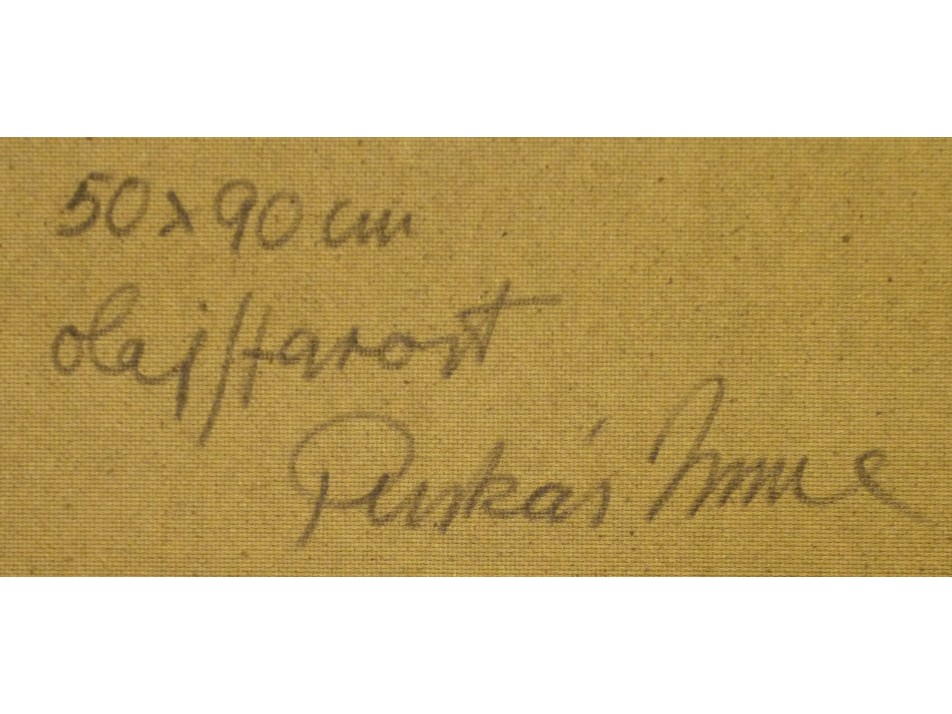 50x90 cm
olaj/farost
Puskás Imre